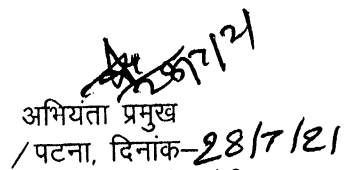 28/7/21
अभियंता प्रमुख
/पटना, दिनांक-28/7/21